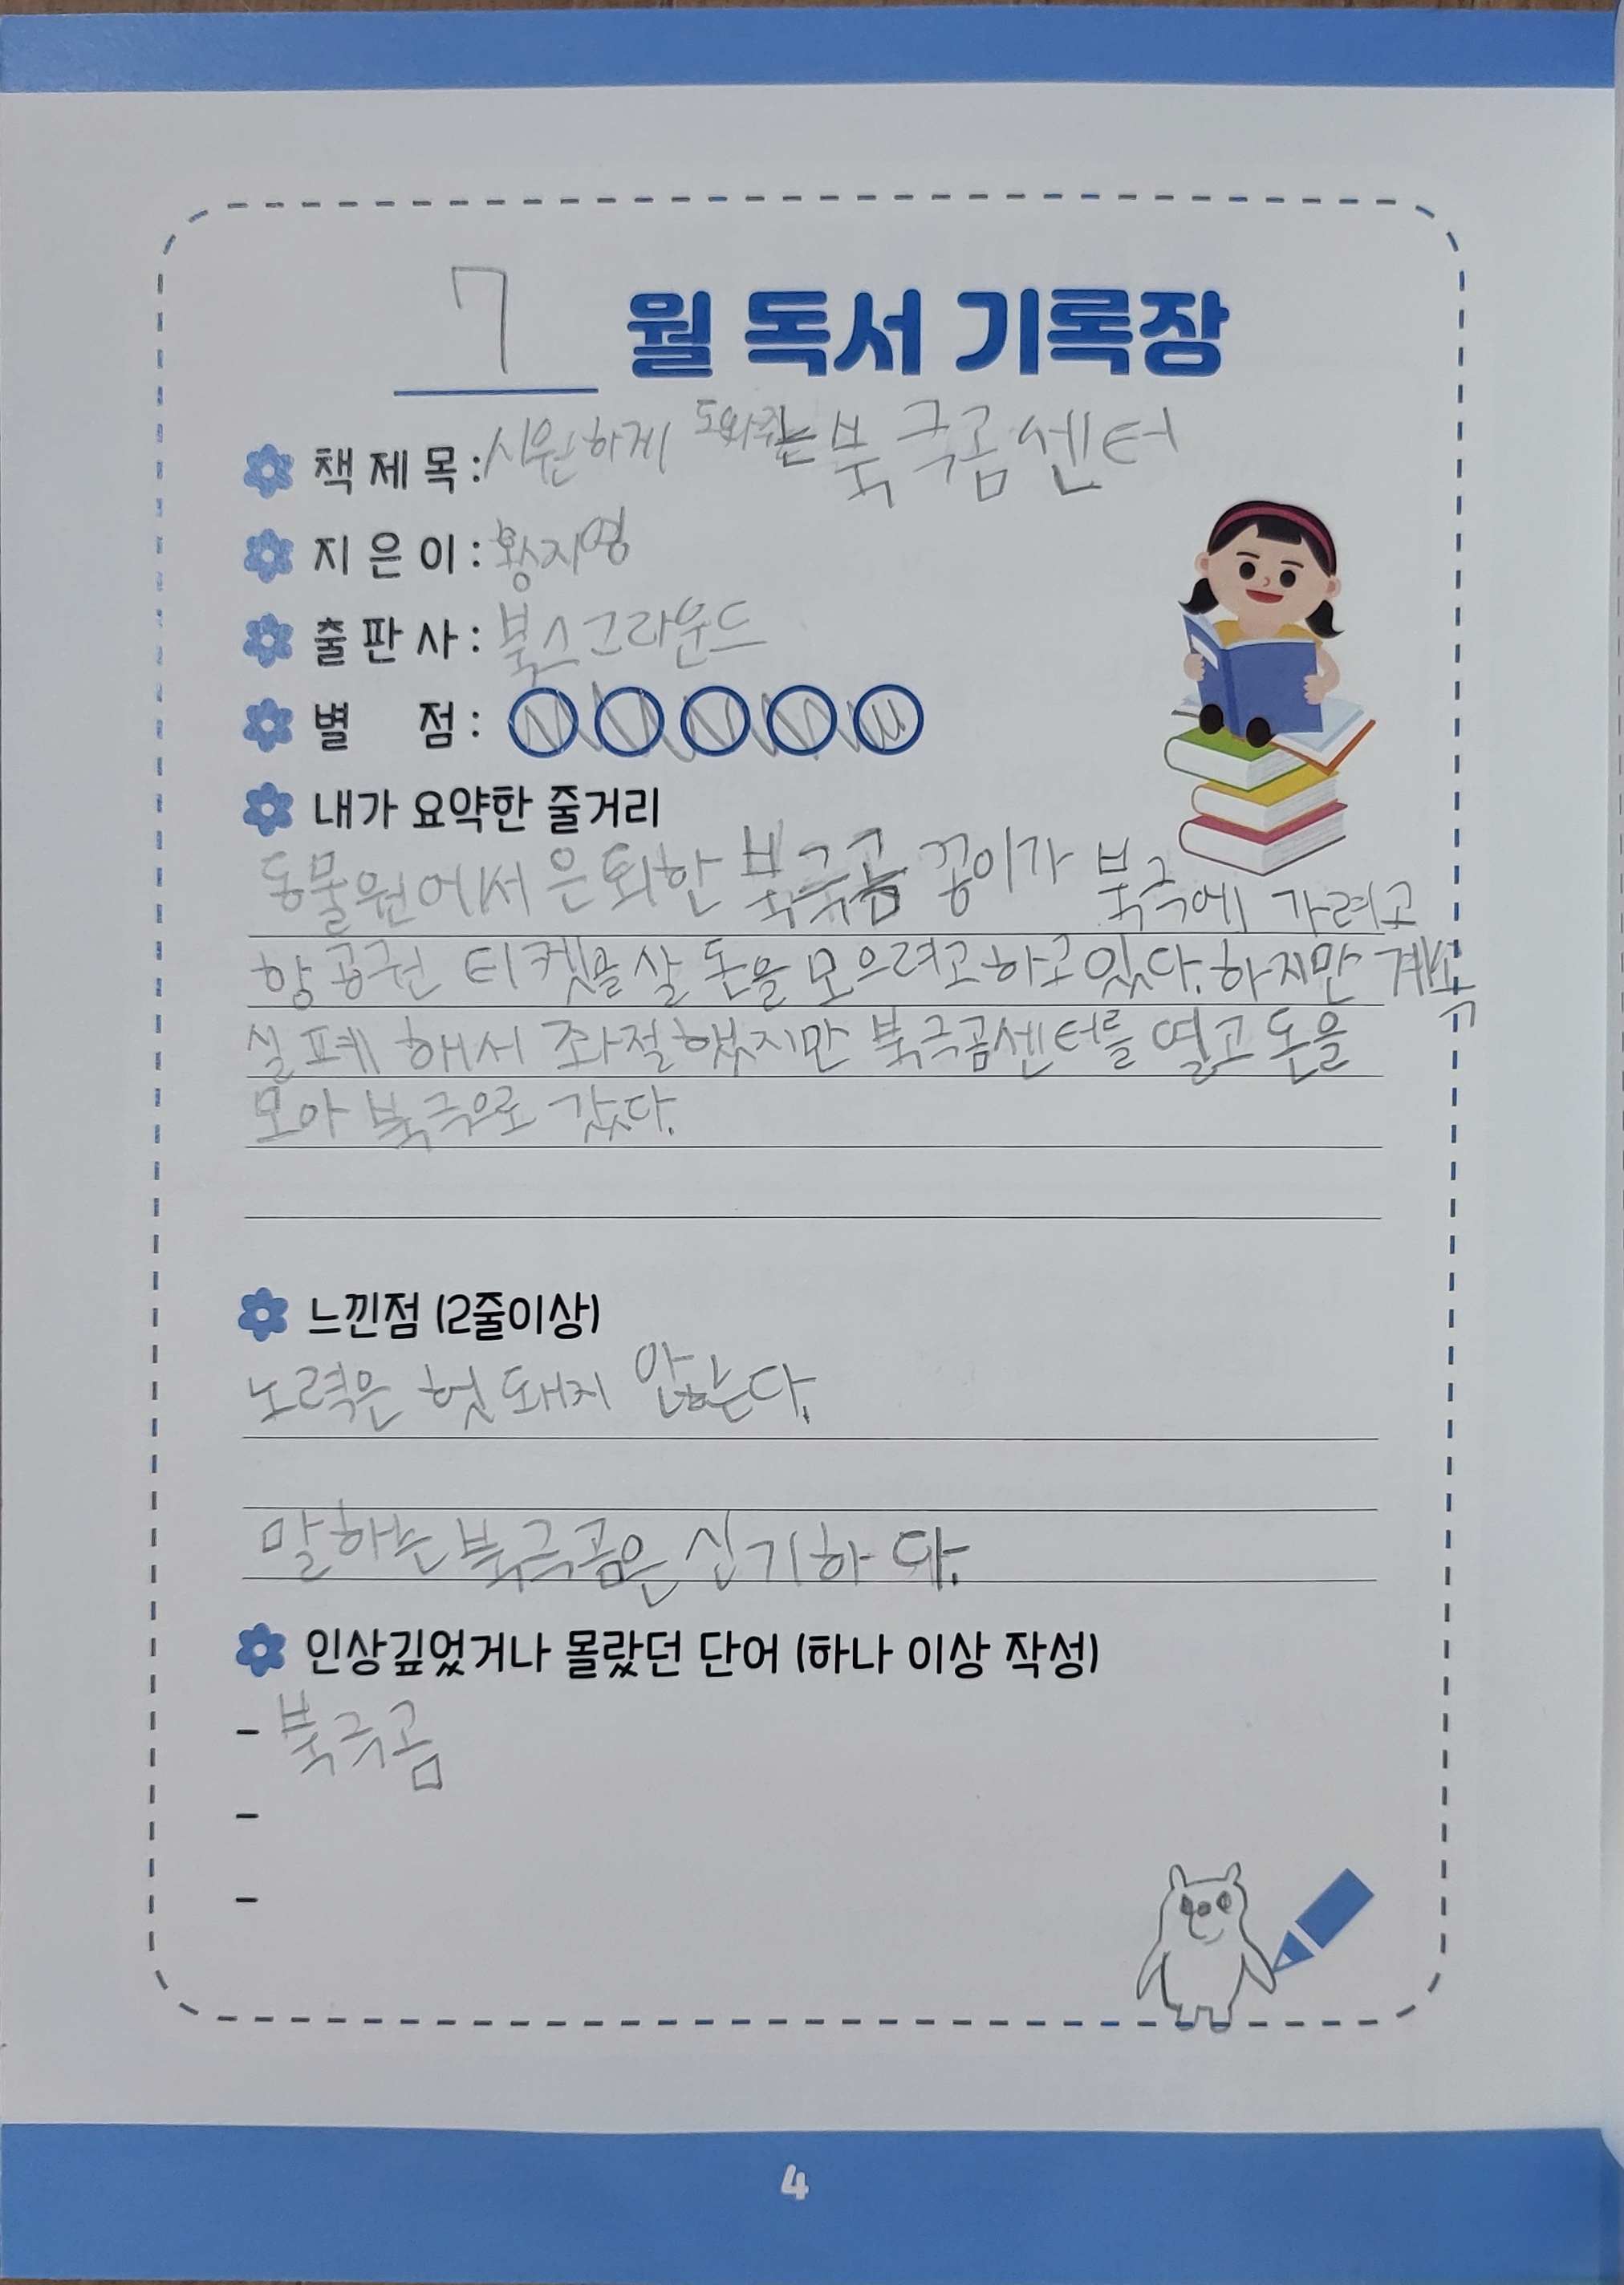 7 월 독서 기록장
책 제 목 : 시원하게 도와주는 북극곰센터
지 은 이 : 황지영
출 판 사 : 북스그라운드
별 점 :
내가 요약한 줄거리
동물원에서 은퇴한 북극곰 꽁이가 북극에 가려고
항공권 티켓을 살 돈을 모으려고하고있다. 하지만 계속
실페 해서 좌절했지만 북극곰센터를 열고 돈을
모아 북극으로 갔다.
느낀점 (2줄이상)
노력은 헛 돼지 안는다.
말하는 북극곰은 신기하다.
인상깊었거나 몰랐던 단어 (하나 이상 작성)
- 북극곰
-
-
4